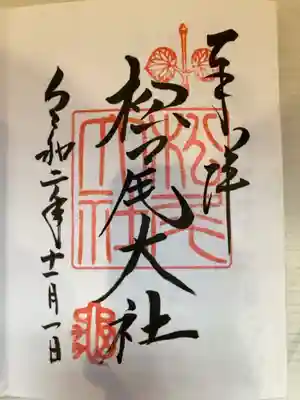 奉拝
松尾大社
令和二年十一月一日
松尾大社